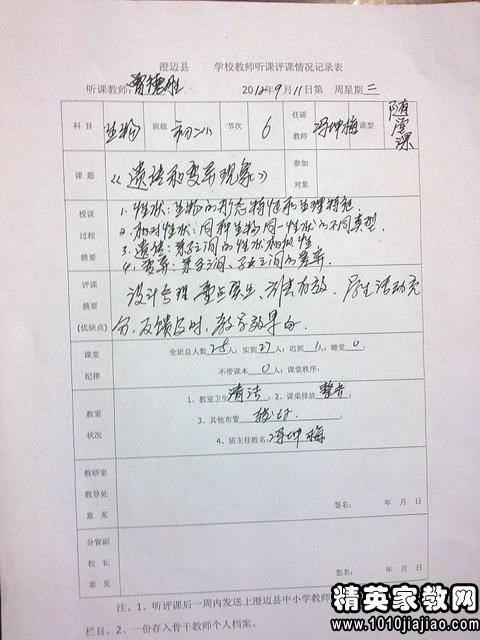 澄迈县 学校教师听课评课情况记录表
听课教师: 曾德胜 2012年9月11日第 周星期二
科目 生物 班级 初二(1) 节次 6 任课教师 冯坤梅 课型 随堂课
课题 《遗传和变异现象》 参加对象
授课过程摘要 1. 性状:生物的形态特征和生理特征
2. 相对性状:同种生物同一性状的不同类型
3. 遗传:亲子之间的性状相似性
4. 变异:亲子之间、子女之间的差异
评课摘要(优缺点) 设计合理 重点突出、别有放、学生活动充
分,反馈及时,教学效果好.
课堂纪律 全班总人数28人;实到27人;迟到1人;睡觉0;
不带课本0人;课堂秩序:
教室状况 1、教室卫生 清洁;2、课桌排放 整齐;
3、其他布置 ;
4、班主任姓名:冯坤梅
教研室教导处意见 签名: 年 月 日
分管副校长意见 签名: 年 月 日
注、1、听评课后一周内发送上澄迈县中小学教师
栏目。2、一份存入骨干教师个人档案。
精英家教网
www.1010jiajiao.com